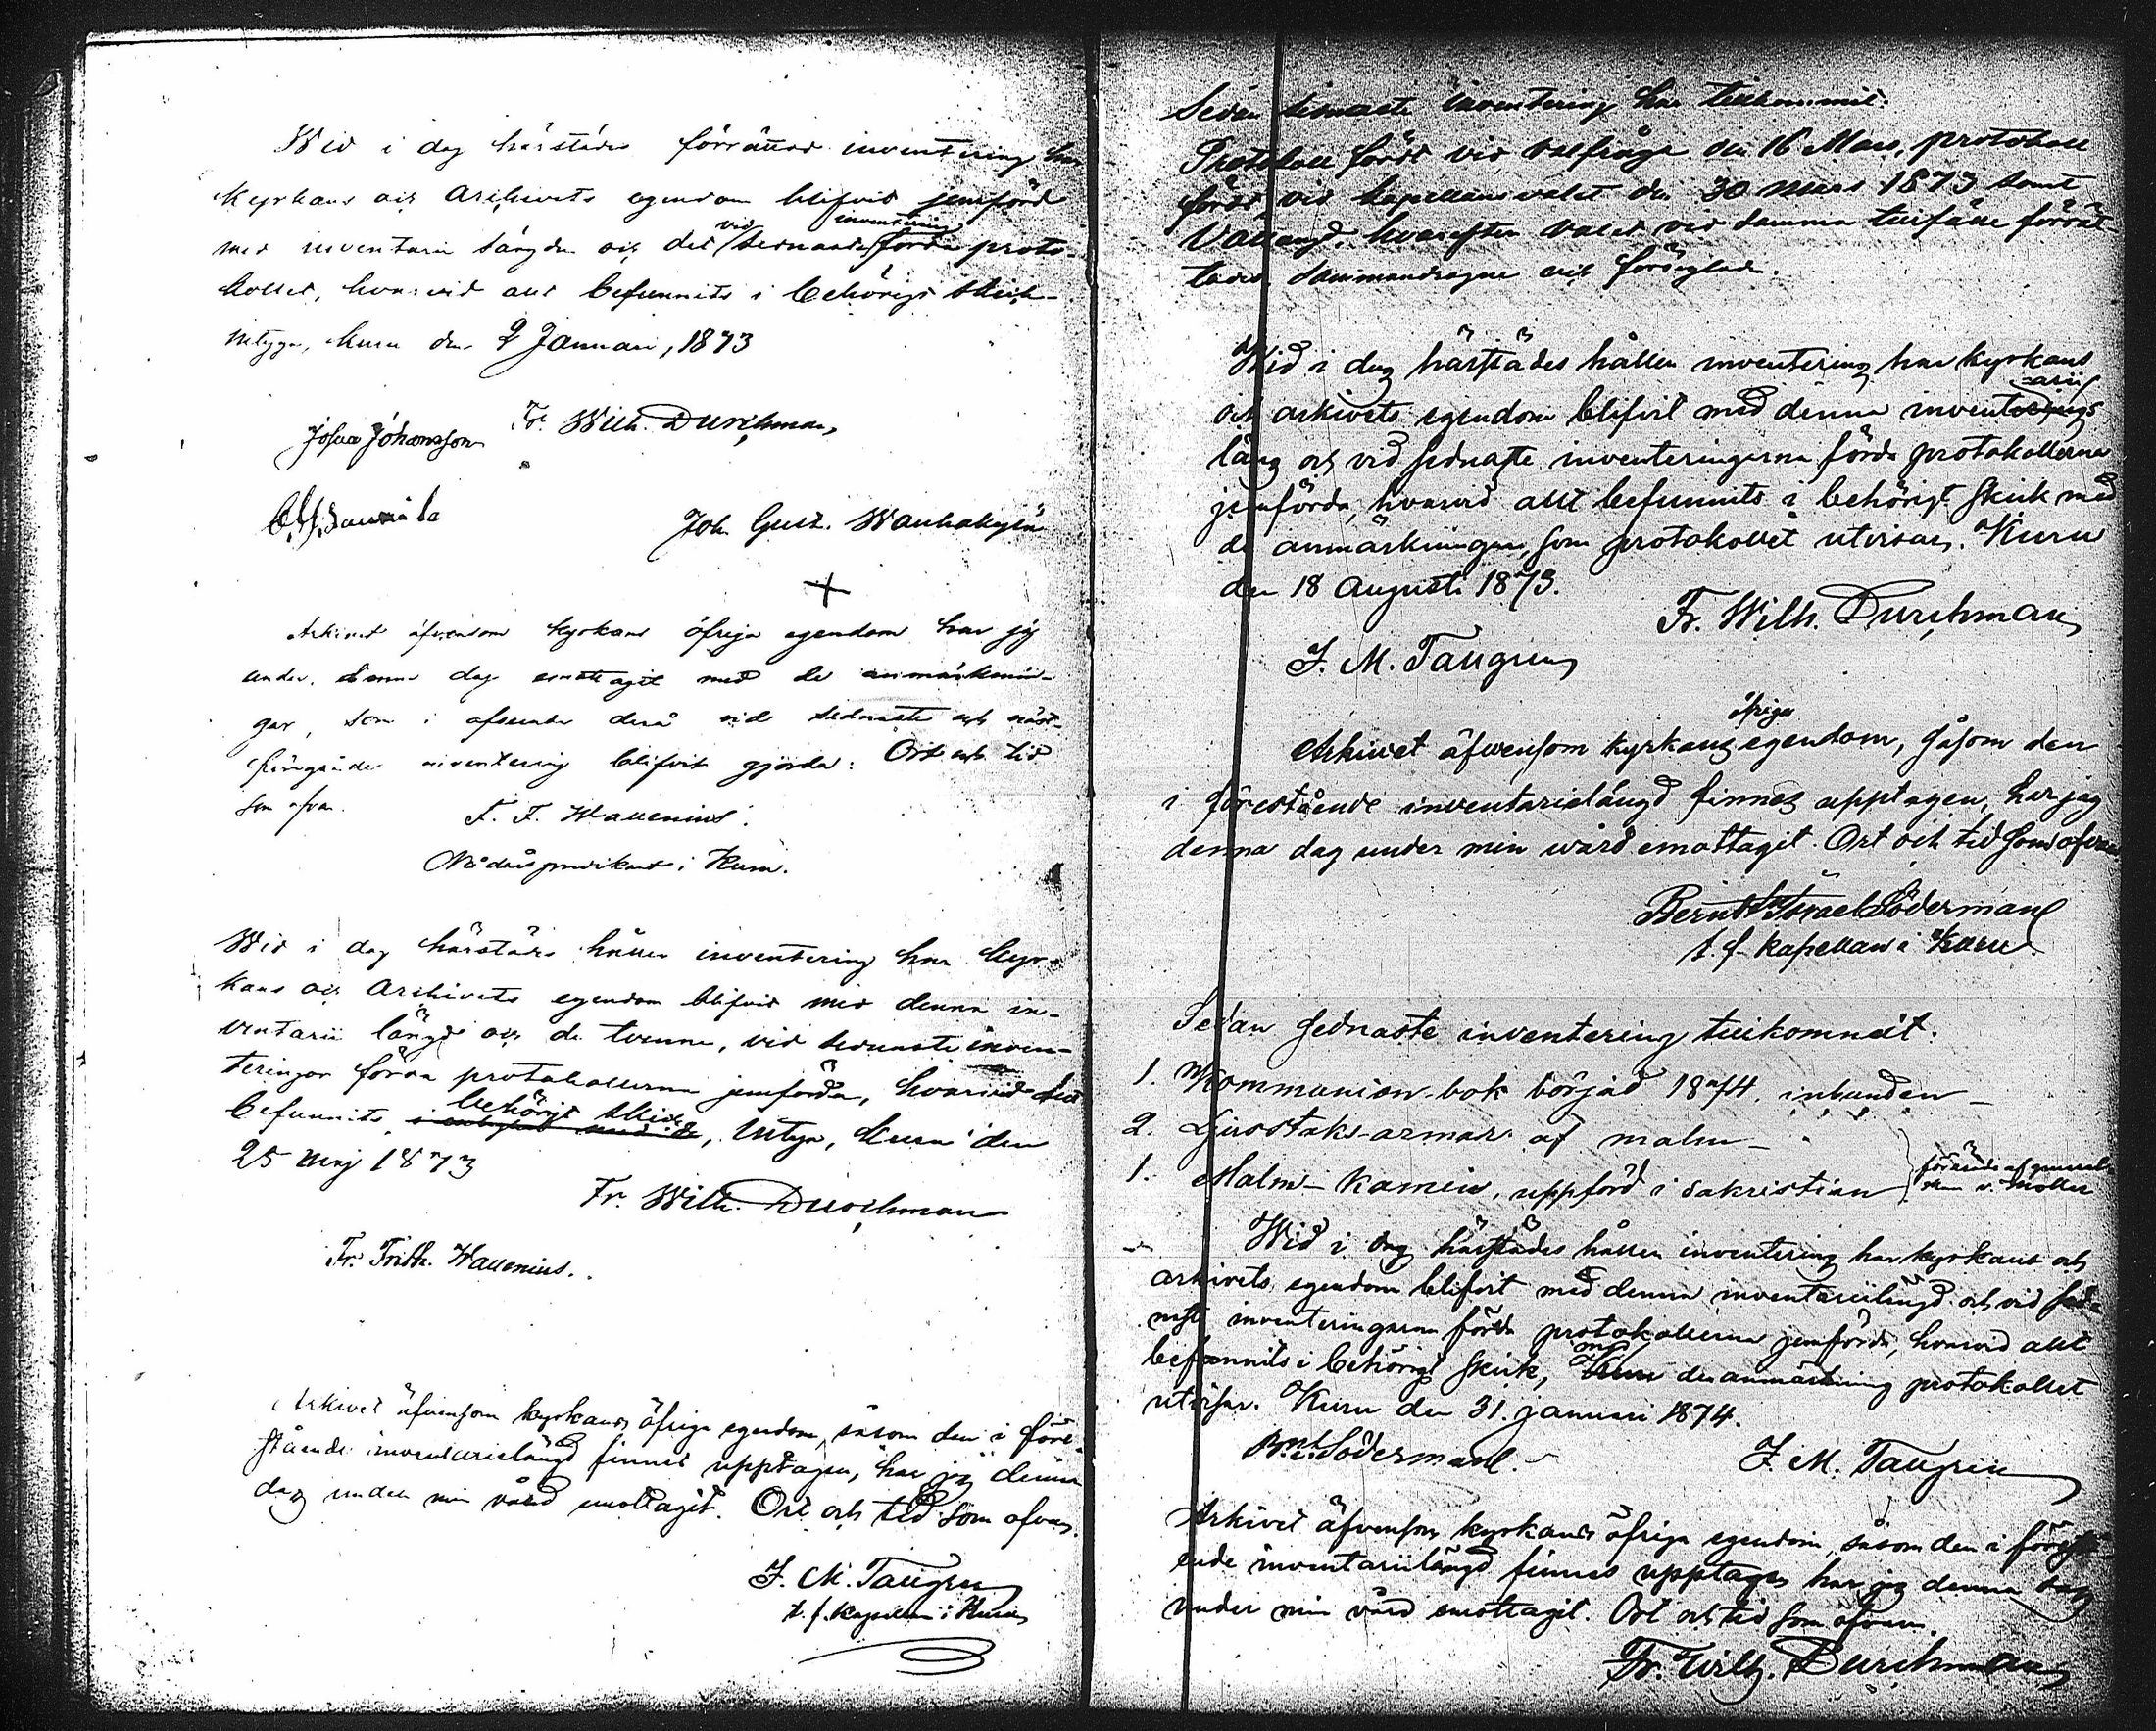 Wid i dag härstädes förrättad inventering har
Kyrkans och Archivets egendom blifvit jemförd
med inventarii längden och det vid sednaste inventering förda proto-
kollet, hvarvid allt befunnits i behörigt skick
intyga, Kuru den 2 Januari, 1873
Josua Johansson Fr. Wilh. Durchman,
Joh. Gust. Wanhakylä
+
Arkivet äfvensom kyrkans öfriga egendom har jag
under denna dag emottagit med de anmärknin-
gar, som i afseende derå vid sednaste och näst-
föregående inventering blifvit gjorda. Ort och tid
som ofvan.
F. F. Wallenius.
Nådårspredikant i Kuru.
Wid i dag härstädes hållen inventering har Kyr-
kans och Archivets egendom blifvit med denna in-
ventarii längd och de tvenne, vid sednaste inven-
teringar förda protokollerna jemförda, hvarvid allt
befunnits i behörigt skick, intyga, Kuru den
25 Maj 1873
Fr. Wilh. Durchman
Fr. Frith. Wallenius.
Arkivet äfvensom kyrkans öfriga egendom, såsom den i före-
stående inventarielängd finnes upptagen, har jag denna
dag under min vård emottagit. Ort och tid som ofvan.
J. M. Taugren
t. f. kapellan i Kuru
Sedan sednaste inventering har tillkommit:
Protokoll fördt vid valfråga den 16 Mars, protokoll
fördt vid kapellansvalet den 30 Mars 1873 samt
Vallängd, hvarefter valet vid samma tillfälle förrät-
tades sammandragne och förseglade.
Wid i dag härstädes hållen inventering har kyrkans
och arkivets egendom blifvit med denna inventarii
läng och vid sednaste inventeringarna förda protokollerna
jemförda, hvarvid allt befunnits i behörigt skick med
de anmärkningar, som protokollet utvisar. Kuru
den 18 Augusti 1873.
Fr. Wilh. Durchman
J. M. Taugren
Arkivet äfvensom kyrkans öfriga egendom, såsom den
i förestående inventarielängd finnes upptagen, har jag
denna dag under min wård emottagit. Ort och tid som ofvan
Bernt Israel Söderman
t. f. kapellan i Kuru.
Sedan sednaste inventering tillkommit:
1. Kommunion-bok börjad 1874, inbunden
2. Ljusstaks-armar af malm
1. Malm-kamin, uppförd i sakristian
Wid i dag härstädes hållen inventering har kyrkans och
arkivets egendom blifvit med denna inventariilängd och vid sed-
nste inventeringarna förda protokollerna jemförda, hvarvid allt
befunnits i behörigt skick, med den anmärkning protokollet
utvisar. Kuru den 31. januari 1874.
Bnt. Söderman. J. M. Taugren
Arkivet äfvensom kyrkans öfriga egendom, såsom den i förestå-
ende inventariilängd finnes upptagen har jag denna dag
under min vård emottagit. Ort och tid som ofvan.
Fr. Wilh. Durchman